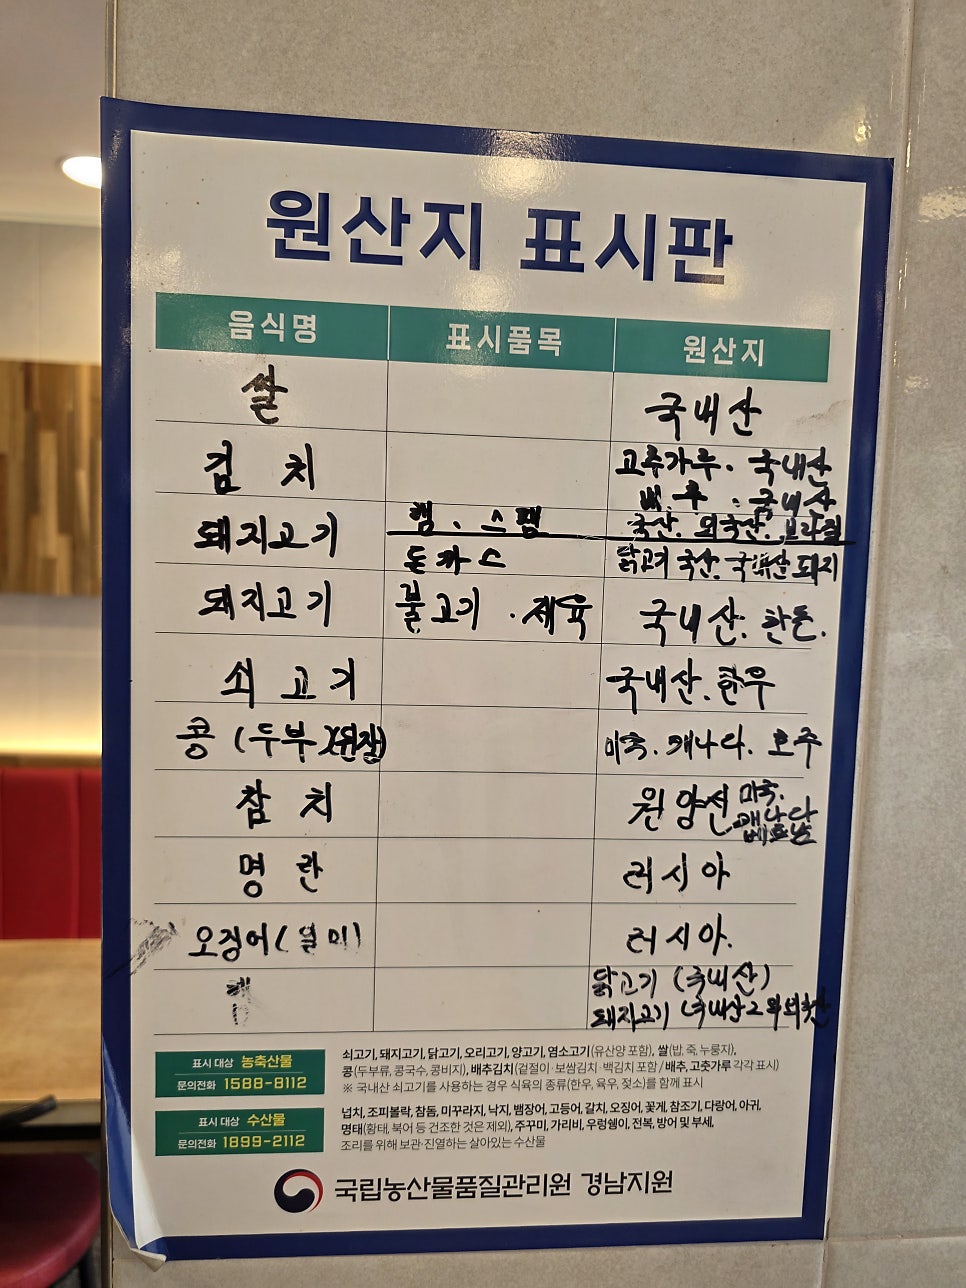 원산지 표시판
음식명 표시품목 원산지
쌀 국내산
김 치 고추가루. 국내산
배 추 . 국내산
돼지고기 햄 . 스팸 국산. 외국산. 브라질
돈까스 닭고기 국산. 국내산 돼지
돼지고기 불고기 . 제육 국내산. 한돈.
쇠 고 기 국내산. 한우
콩 (두부)(된장) 미국. 캐나다. 호주
참 치 원양선 미국.
캐나다
베트남
명 란 러시아
오징어( 일미) 러시아.
햄 닭고기 (국내산)
돼지고기
표시 대상 농축산물
문의전화 1588-8112
쇠고기, 돼지고기, 닭고기, 오리고기, 양고기, 염소고기(유산양 포함), 쌀(밥, 죽, 누룽지),
콩(두부류, 콩국수, 콩비지), 배추김치(겉절이·보쌈김치·백김치 포함 / 배추, 고춧가루 각각 표시)
※ 국내산 쇠고기를 사용하는 경우 식육의 종류(한우, 육우, 젖소)를 함께 표시
표시 대상 수산물
문의전화 1899-2112
넙치, 조피볼락, 참돔, 미꾸라지, 낙지, 뱀장어, 고등어, 갈치, 오징어, 꽃게, 참조기, 다랑어, 아귀,
명태(황태, 북어 등 건조한 것은 제외), 주꾸미, 가리비, 우렁쉥이, 전복, 방어 및 부세,
조리를 위해 보관·진열하는 살아있는 수산물
국립농산물품질관리원 경남지원